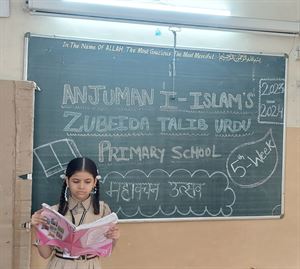 In The Name Of ALLAH The Most Gracious The Most Merciful
ANJUMAN I-ISLAM'S
2023
2024
ZUBEIDA TALIB URDU
PRIMARY SCHOOL
5th Week
महावाचन उत्सव